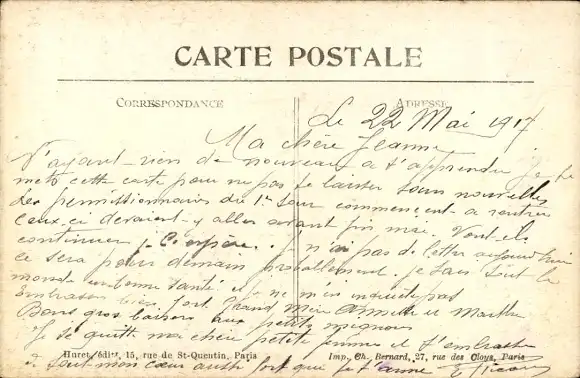 CARTE POSTALE
CORRESPONDANCE
ADRESSE
Le 22 Mai 1917
Ma chère Jeanne
N'ayant rien de nouveau a t'apprendre je te
mets cette carte pour ne pas te laisser sans nouvelles
Les permissionnaires du 1er tour commencent a rentrer
Ceux-ci devraient y aller avant fin mai. Vont-ils
continuer je l'espère. Je n'ai pas de lettre aujourd'hui
ce sera pour demain probablement. Je sais tout le
monde en bonne santé et je ne m'en inquiète pas
Embrasse bien fort Grand Mère Annette et Marthe
Bons gros baisers aux petits mignons
Je te quitte ma chère petite femme et t'embrasse
de tout mon cœur aussi fort que je t'aime
Huret, édit., 15, rue de St-Quentin, Paris
Imp. Ch. Bernard, 27, rue des Cloys, Paris